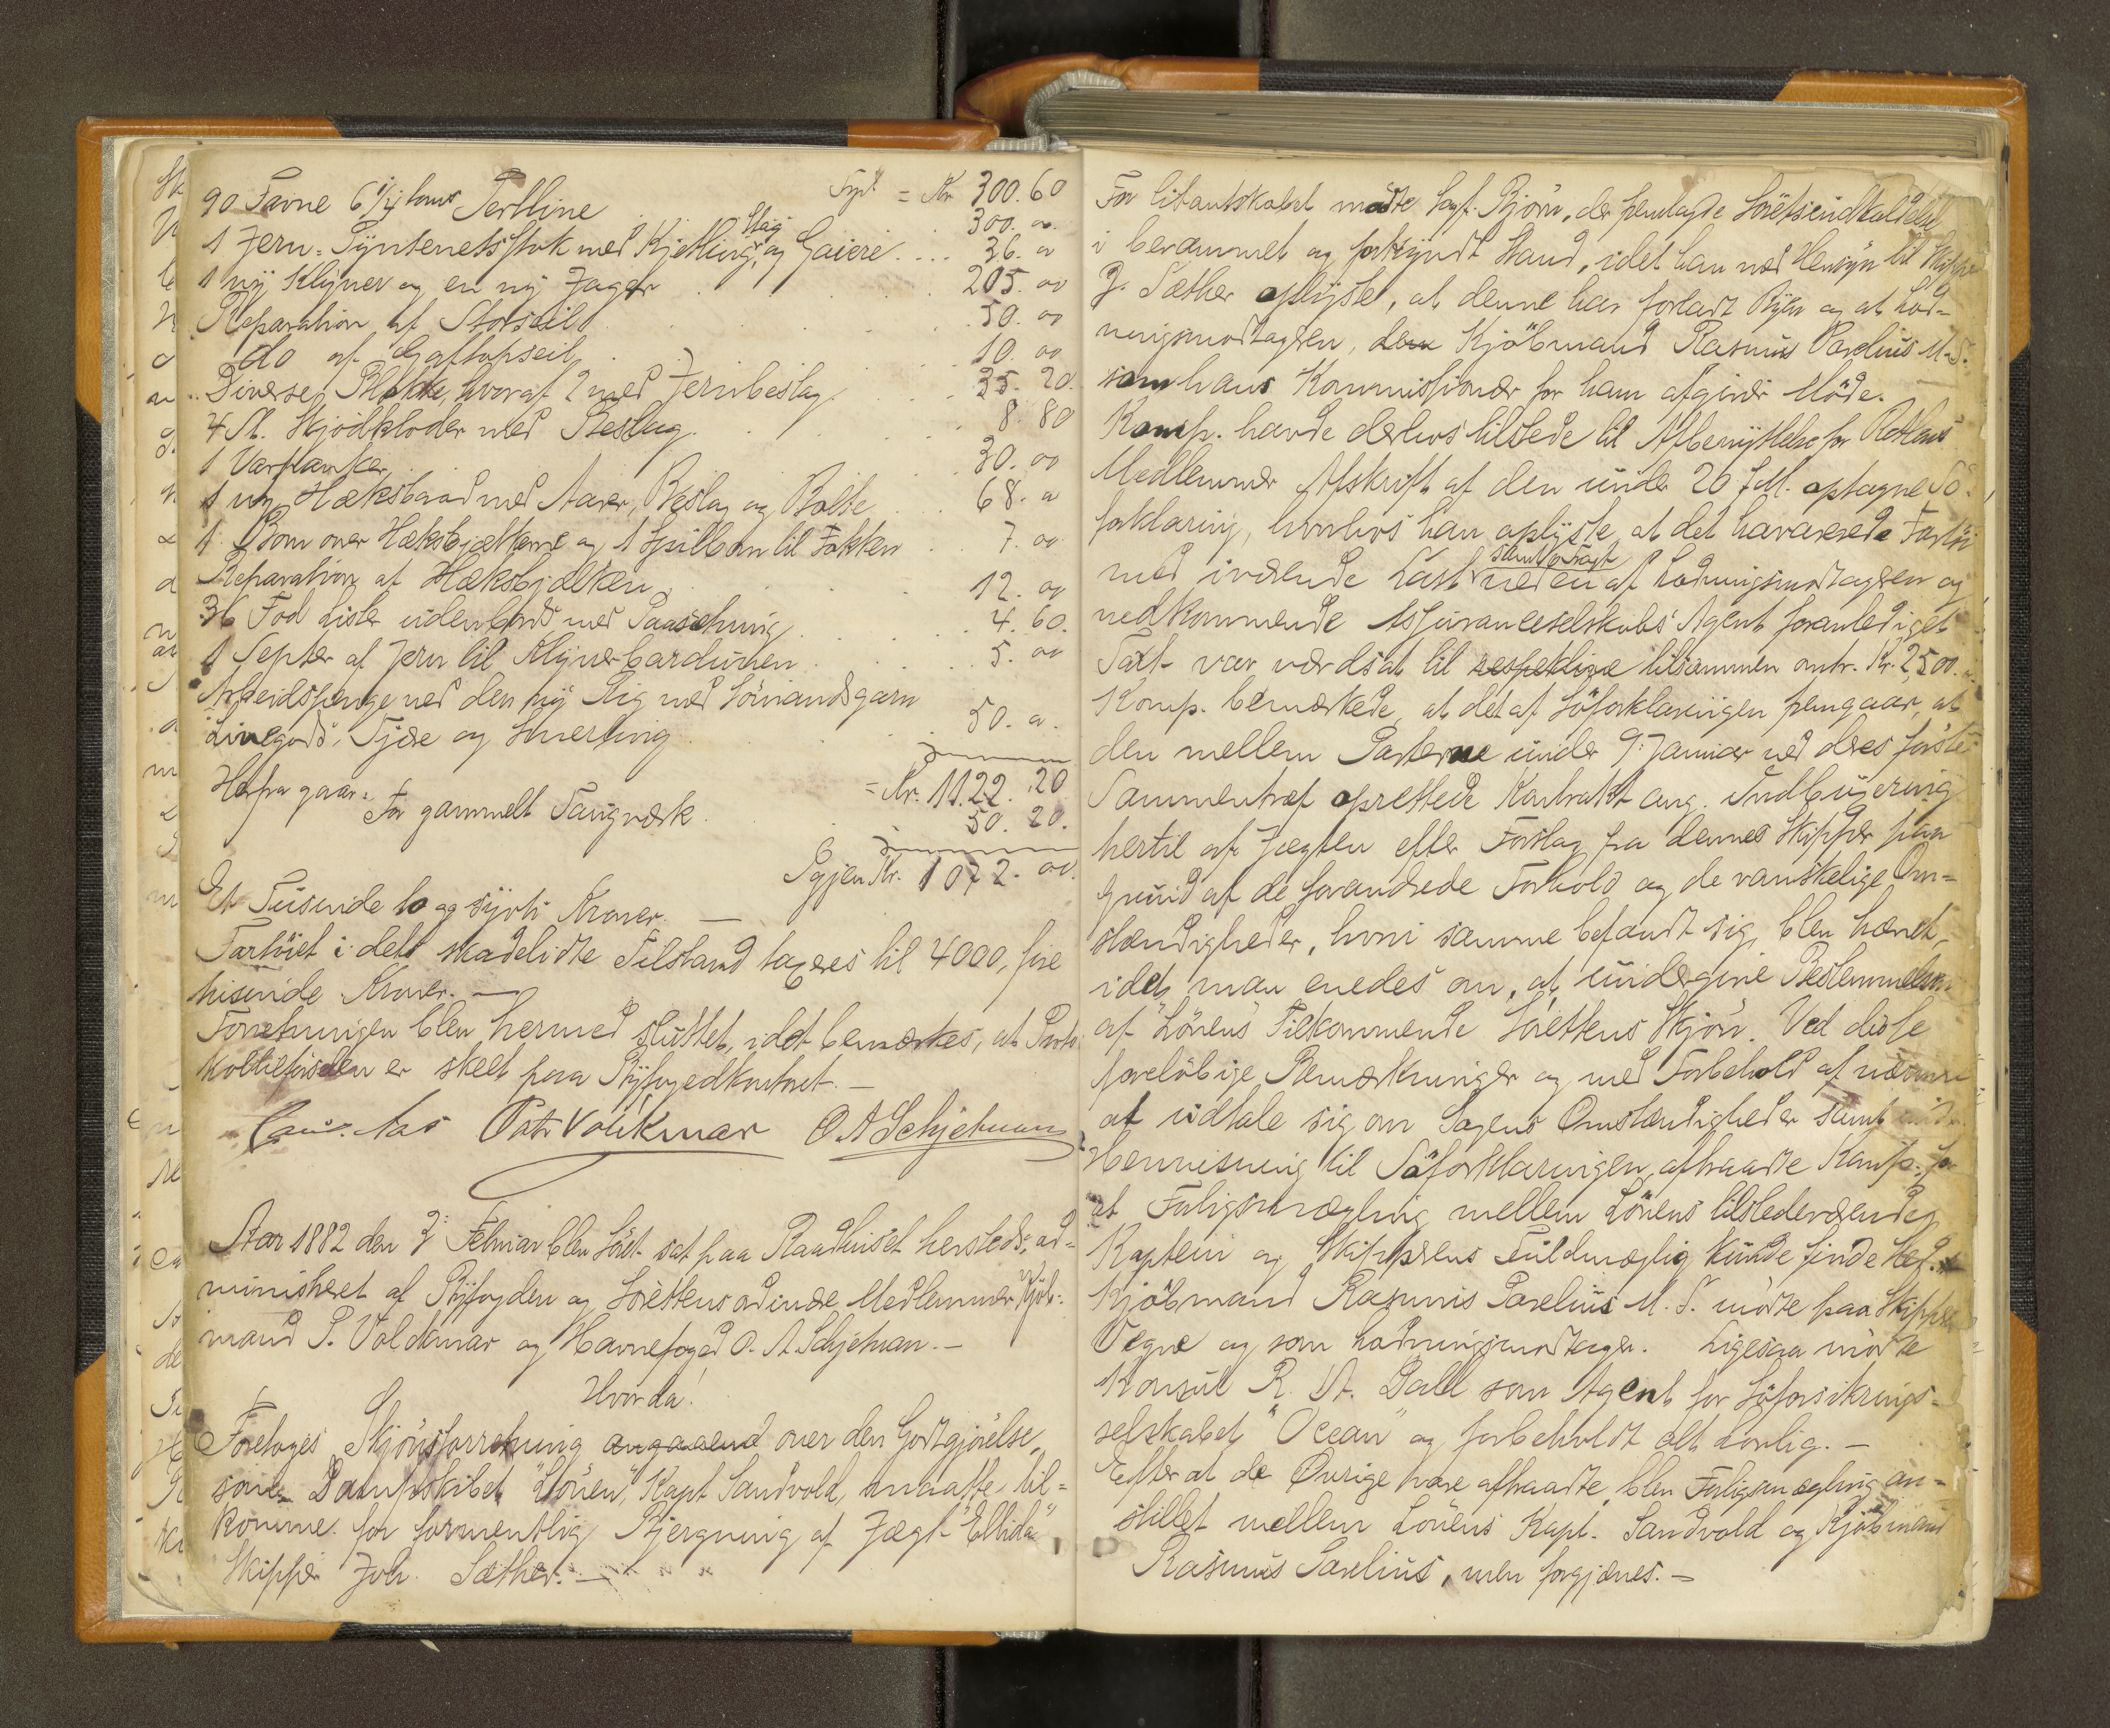 Fyrt = Kr 300.60
90 Favne 6 1/4 toms Pertline . 300. 00.
1 Jern-Pyntenetsstok med Kjetting, Stag og Gaiere .... 36. 00
1 ny Klyver og en ny Jager . . . 205. 00
Reparation af Storseil . . . 50. 00
do af Gaftopseil . . . 10. 00
Diverse Blokke, hvoraf 2 med Jernbeslag . . . 35. 20.
4 St. Skjödkloder med Beslag . . . 8. 80
1 Varpanker . . . 30. 00
1 ny Hæksbaad med Aarer, Beslag og Bolte . . . 68. 00
1 Bom over Hæksbjælkene og 1 Spilbom til Fokken . . 7. 00
Reparation af Hæksbjælken . . . 12. 00
36 Fod Lister udenbords med Paasetning . . . 4. 60.
1 Septer af Jern til Klyverbardunen . . . 5. 00
Arbeidspenge ved den ny Rig med Sömandsgarn
Linegods, Tjære og Smerting . . . 50. 00.
= Kr. 1122. 20
Herfra gaar:
For gammelt Taugværk . . . 50. 20.
Igjen Kr. 1072. 00.
Et Tusinde to og syvti Kroner. —
Fartöiet i dets skadelidte Tilstand taxeres til 4000, fire
tusinde Kroner. —
Forretningen blev hermed sluttet, idet bemærkes, at Proto
kolltilförselen er skeet paa Byfogedkontoret. —
Aas Petr Voldkmar O. A Schjelman
Aar 1882 den 3 Februar blev Söret. sat paa Raadhuset hersteds, ad-
ministreret af Byfogden og Sörettens ordinære Medlemmer Kjöb-
mand P. Voldkmar og Havnefoged O. A. Schjelman. —
Hvorda!
Foretoges Skjönsforretning angaaend over den Godtgjörelse,
som Dampskibet "Löven", Kapt Sandvold, maatte til-
komme for formentlig Bjergning af Jægt "Ellida",
Skipper Joh. Sæther. —
For Citantskabet mödte Sagf. Björn, der fremlagde Söretsindkaldelse
i berammet og forkyndt Stand, idet han med Hensyn til Skipper
J. Sæther oplyste, at denne har forladt Byen og at Lad-
ningsmodtageren, dem Kjöbmand Rasmus Parelius M. S.
som hans Kommissionær for ham afgiver Möde.
Komp. havde derhos tilstede til Afbenyttelse for Rettens
Medlemmer Afskrift af den under 26 f. M. optagne Sö-
forklaring, hvorhos han oplyste, at det havarerede Fartöi
med iværende Last samt Fragt ved en af Ladningsmodtageren og
vedkommende Assuranceselskabs Agent foranlediget
Taxt var værdsat til respektive tilsammen omtr. Kr. 2,500.
Komp. bemærkede, at det af Söforklaringen fremgaar, at
den mellem Parterne under 9. Januar ved deres förste
Sammentræf oprettede Kontrakt ang. Indbugsering
hertil af Jægten efter Forslag fra dennes Skipper paa
Grund af de forandrede Forhold og de vanskelige Om-
stændigheder, hvori samme befandt sig, blev hævet,
idet man enedes om, at undergive Bestemmelsen
af "Lövens" Tilkommende Sörettens Skjön. Ved disse
foreløbige Bemærkninger og med Forbehold af nærmere
at udtale sig om Sagens Omstændigheder samt under
Henvisning til Söforklaringen, aftraadte Komp. for
at Forligsmægling mellem Lövens tilstedeværende
Kaptein og Skipperens Fuldmægtig kunde finde Sted.
Kjöbmand Rasmus Parelius M. S. mödte paa Skipperens
Vegne og som Ladningsmodtager. Ligesaa mödte
Konsul R. A. Dall som Agent for Söforsikrings-
selskabet "Ocean" og forbeholdt alt Lovlig. —
Efter at de Övrige have aftraadte blev Forligsmægling an-
stillet mellem Lövens Kapt. Sandvold og Kjöbmand
Rasmus Parelius, men forgjæves. —